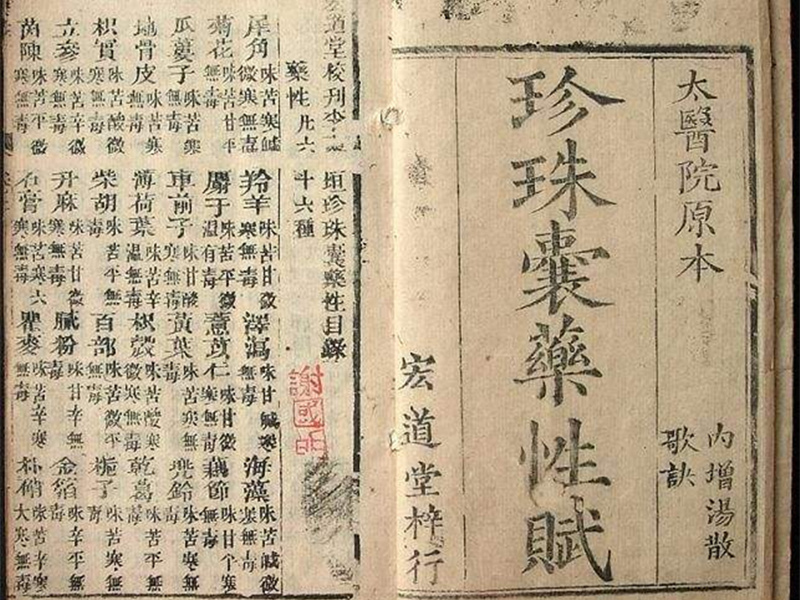 太醫院原本
內增湯散
歌訣
珍珠囊藥性賦
宏道堂梓行
道堂校刊李 垣珍珠囊藥性目錄
藥性凡六十六種
犀角 味苦寒鹹微寒無毒 羚羊 味苦甘微寒無毒 澤瀉 味甘鹹寒無毒 海藻 味苦鹹微寒無毒
菊花 味苦甘平無毒 味苦平微溫有毒 薏苡仁 味甘微寒無毒 藕節 味甘寒無毒
瓜蔞子 味苦寒無毒 車前子 味甘酸寒無毒 黃葉 味苦寒無毒 兜鈴 味苦寒無毒
地骨皮 味苦寒無毒 薄荷葉 味苦辛溫無毒 枳殼 味苦酸微寒無毒 乾葛 味苦平無毒
枳實 味苦酸微寒無毒 柴胡 味苦平無毒 百部 味苦微平無毒 梔子 味苦寒無毒
玄參 味苦微寒無毒 升麻 味苦甘微寒無毒 膩粉 味甘辛無毒 金箔 味辛平無毒
茵陳 味苦平微寒無毒 石膏 味苦寒大寒無毒 瞿麥 味苦辛寒無毒 朴硝 味苦辛大寒無毒
謝國